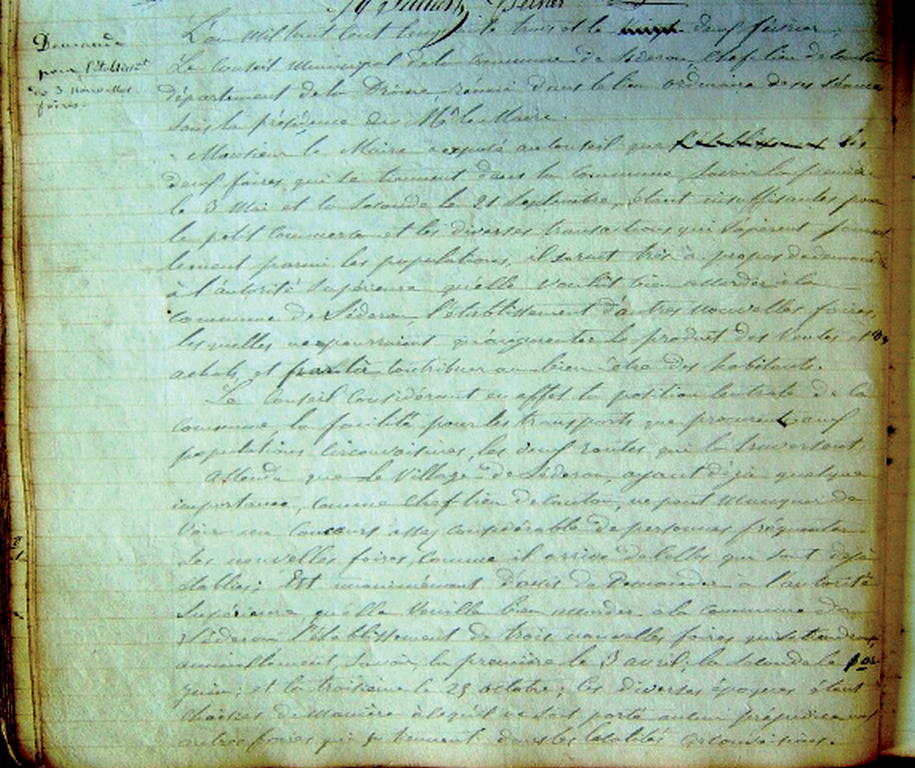 Demande
pour l'établissemt
de 3 nouvelles
foires.
L'an mil huit cent trois et le deux février,
Le Conseil Municipal de la commune de Séderon, chef lieu de canton
département de la Drôme réuni dans le lieu ordinaire de ses séances
sous la présidence de Mr le Maire.
Monsieur le Maire a exposé au conseil que l'établissement les
deux foires qui se tiennent dans la commune, savoir la première
le 3 Mai et la seconde le 21 Septembre, étant insuffisantes pour
le petit commerce et les diverses transactions qui s'opèrent
parmi les populations, il serait très à propos de demander
à l'autorité supérieure qu'elle voulût bien accorder à la
commune de Séderon l'établissement de trois nouvelles foires,
lesquelles ne pourraient qu'augmenter le produit des ventes et des
achats et contribuer au bien être des habitants.
Le Conseil considérant en effet la position centrale de la
commune, la facilité pour les transports que procurent aux
populations circonvoisines, les deux routes qui la traversent,
Attendu que le village de Séderon, ayant déjà quelque
importance, comme chef lieu de canton, ne peut manquer de
voir un concours assez considérable de personnes fréquenter
les nouvelles foires, comme il arrive de celles qui sont déjà
établies; Est unanimement d'avis de demander à l'autorité
Supérieure, qu'elle veuille bien accorder à la commune de
Séderon l'établissement de trois nouvelles foires qui se tiendront
annuellement, savoir, la première le 3 avril; la seconde le 1er
juin; et la troisième le 25 octobre; ces diverses époques étant
choisies de manière à ce qu'il ne soit porté aucun préjudice aux
autres foires qui se tiennent dans les localités circonvoisines.